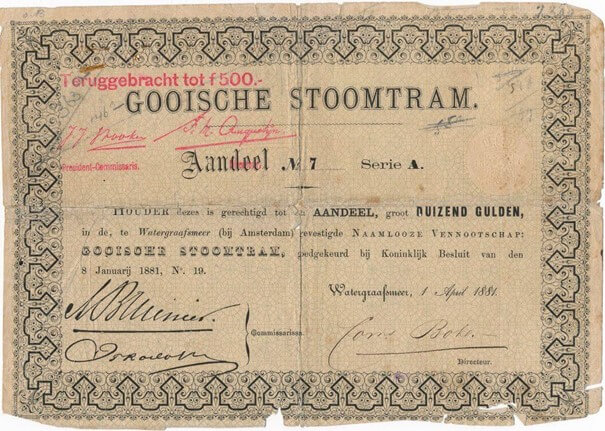 Teruggebracht tot f 500.-
GOOISCHE STOOMTRAM.
President-Commissaris.
Aandeel № 7 Serie A.
HOUDER dezes is gerechtigd tot één AANDEEL, groot DUIZEND GULDEN,
in de, te Watergraafsmeer (bij Amsterdam) gevestigde NAAMLOOZE VENNOOTSCHAP:
GOOISCHE STOOMTRAM, goedgekeurd bij Koninklijk Besluit van den
8 Januarij 1881, Nº. 19.
Watergraafsmeer, 1 April 1881.
Commissarissen.
Directeur.